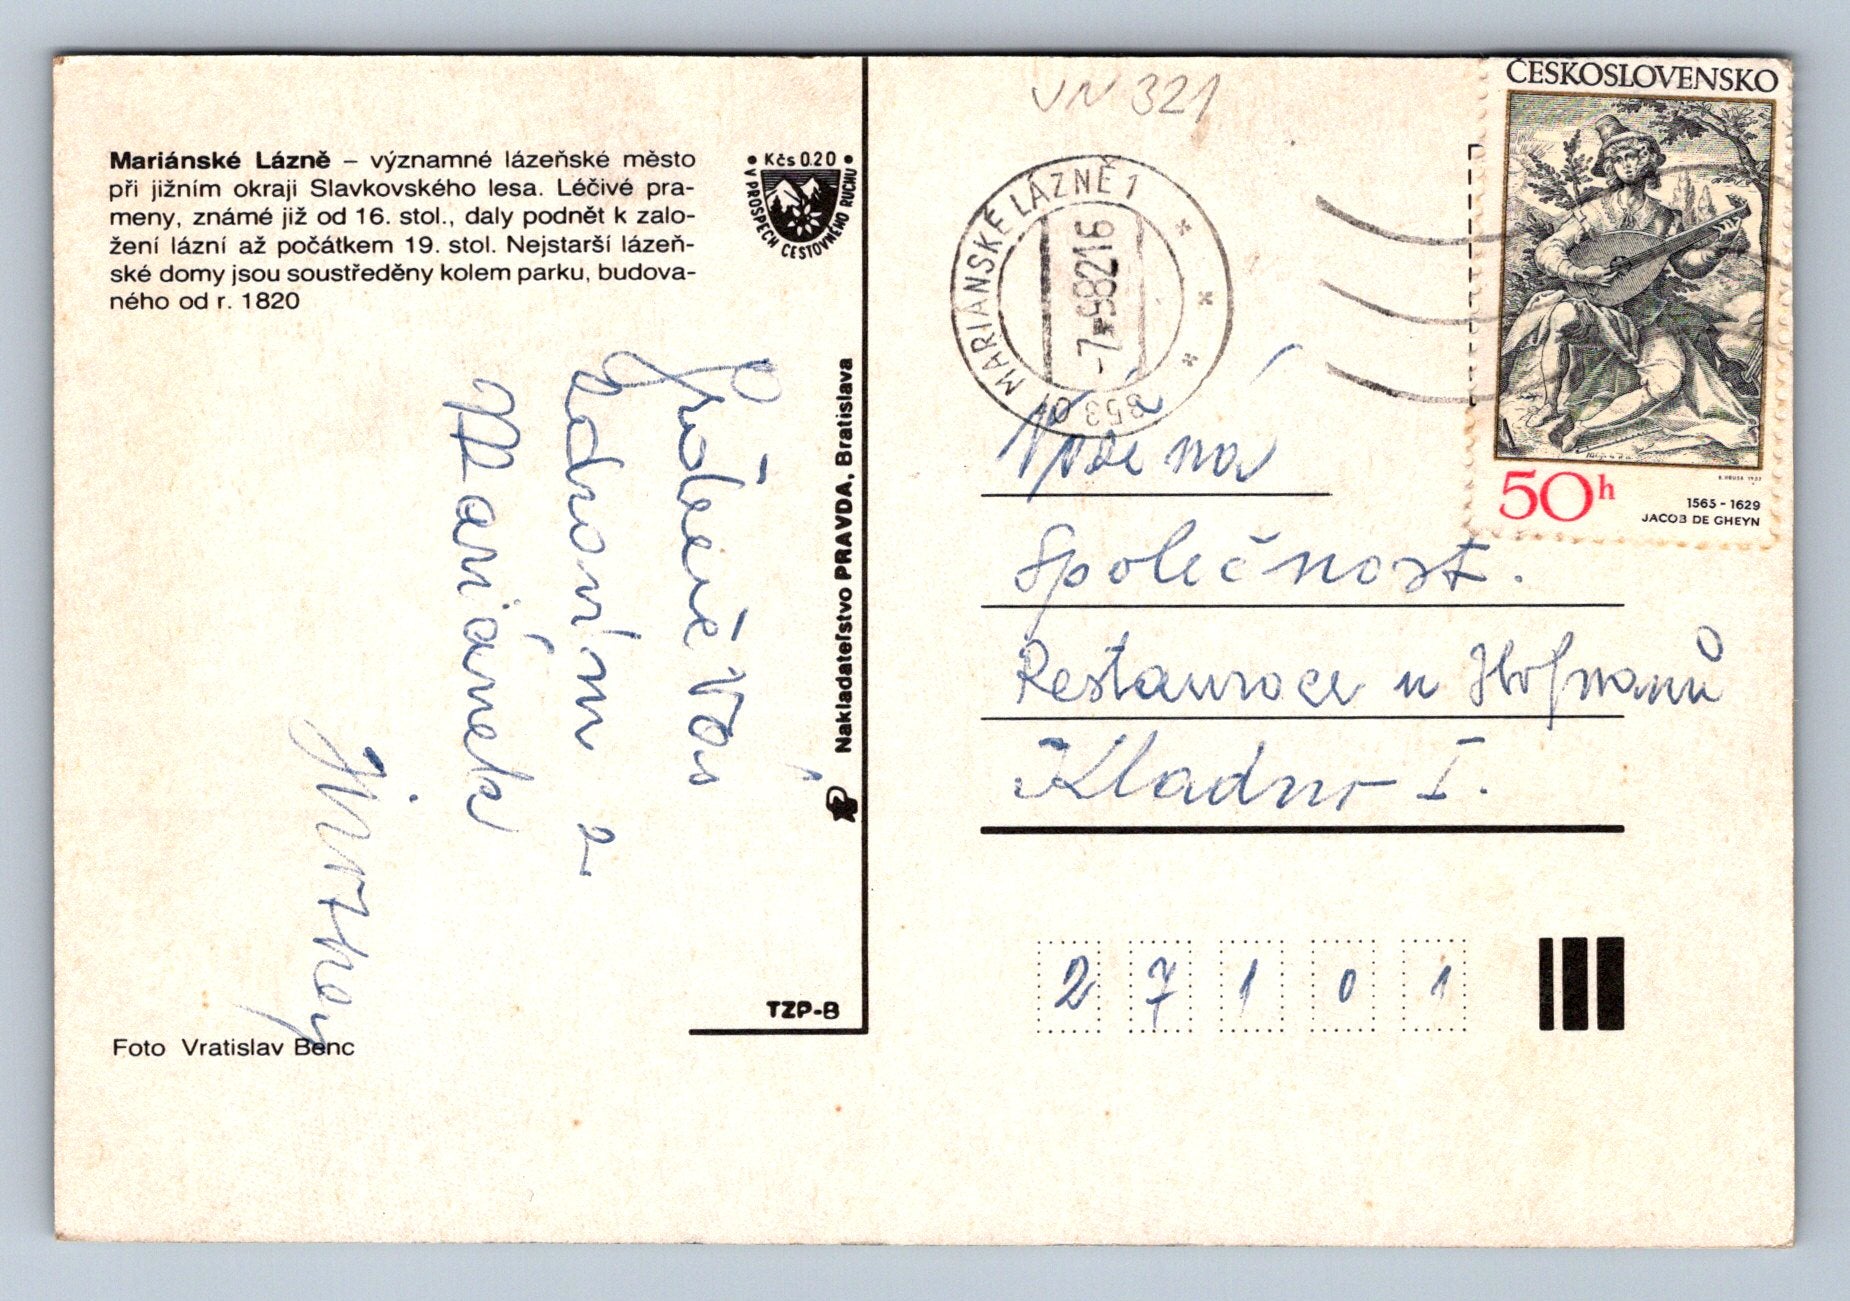 VN 321
ČESKOSLOVENSKO
Mariánské Lázně – významné lázeňské město
při jižním okraji Slavkovského lesa. Léčivé pra-
meny, známé již od 16. stol., daly podnět k zalo-
žení lázní až počátkem 19. stol. Nejstarší lázeň-
ské domy jsou soustředěny kolem parku, budova-
ného od r. 1820
Kčs 0.20
V PROSPĚCH CESTOVNÉHO RUCHU
MARIÁNSKÉ LÁZNĚ 1
-7.-9.82 16
353 01
50h
1565 - 1629
JACOB DE GHEYN
Srdečně Vás
zdravím z
Mariánek
Nakladateľstvo PRAVDA, Bratislava
Vážená
Společnost.
Restaurace u Hofmanů
Kladno I.
27101
TZP-B
Foto Vratislav Benc